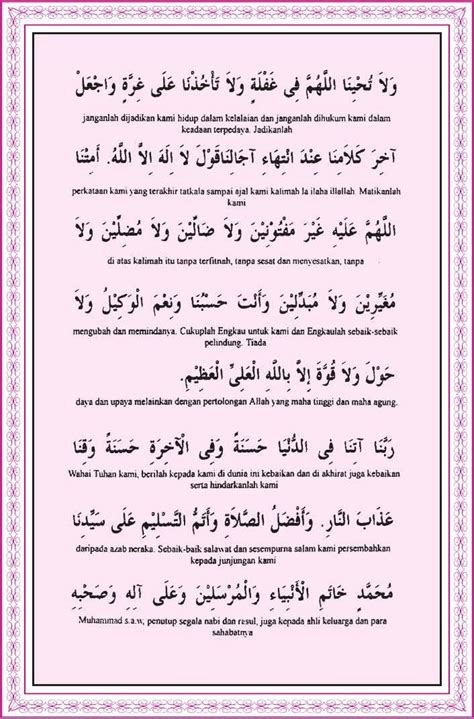 وَلاَ تُحْيِنَا اللَّهُمَّ فِى غَفْلَةٍ وَلاَ تَأْخُذْنَا عَلَى غِرَّةٍ وَاجْعَلْ
janganlah dijadikan kami hidup dalam kelalaian dan janganlah dihukum kami dalam
keadaan terpedaya. Jadikanlah
آخِرَ كَلاَمِنَا عِنْدَ انْتِهَاءِ آجَالِنَاقَوْلَ لاَ اِلَهَ اِلاَّ اللَّهُ. أَمِتْنَا
perkataan kami yang terakhir tatkala sampai ajal kami kalimah la ilaha illallah. Matikanlah
kami
اللَّهُمَّ عَلَيْهِ غَيْرَ مَفْتُوْنِيْنَ وَلاَ ضَالِّيْنَ وَلاَ مُضِلِّيْنَ وَلاَ
di atas kalimah itu tanpa terfitnah, tanpa sesat dan menyesatkan, tanpa
مُغَيِّرِيْنَ وَلاَ مُبَدِّلِيْنَ وَأَنْتَ حَسْبُنَا وَنِعْمَ الْوَكِيْلُ وَلاَ
mengubah dan memindanya. Cukuplah Engkau untuk kami dan Engkaulah sebaik-sebaik
pelindung. Tiada
حَوْلَ وَلاَ قُوَّةَ إِلاَّ بِاللَّهِ الْعَلِىِّ الْعَظِيْمِ.
daya dan upaya melainkan dengan pertolongan Allah yang maha tinggi dan maha agung.
رَبَّنَا آتِنَا فِى الدُّنْيَا حَسَنَةً وَفِى الْآخِرَةِ حَسَنَةً وَقِنَا
Wahai Tuhan kami, berilah kepada kami di dunia ini kebaikan dan di akhirat juga kebaikan
serta hindarkanlah kami
عَذَابَ النَّارِ. وَأَفْضَلُ الصَّلاَةِ وَأَتَمُّ التَّسْلِيْمِ عَلَى سَيِّدِنَا
daripada azab neraka. Sebaik-baik salawat dan sesempurna salam kami persembahkan
kepada junjungan kami
مُحَمَّدٍ خَاتَمِ الْأَنْبِيَاءِ وَالْمُرْسَلِيْنَ وَعَلَى آلِهِ وَصَحْبِهِ
Muhammad s.a.w, penutup segala nabi dan rasul, juga kepada ahli keluarga dan para
sahabatnya